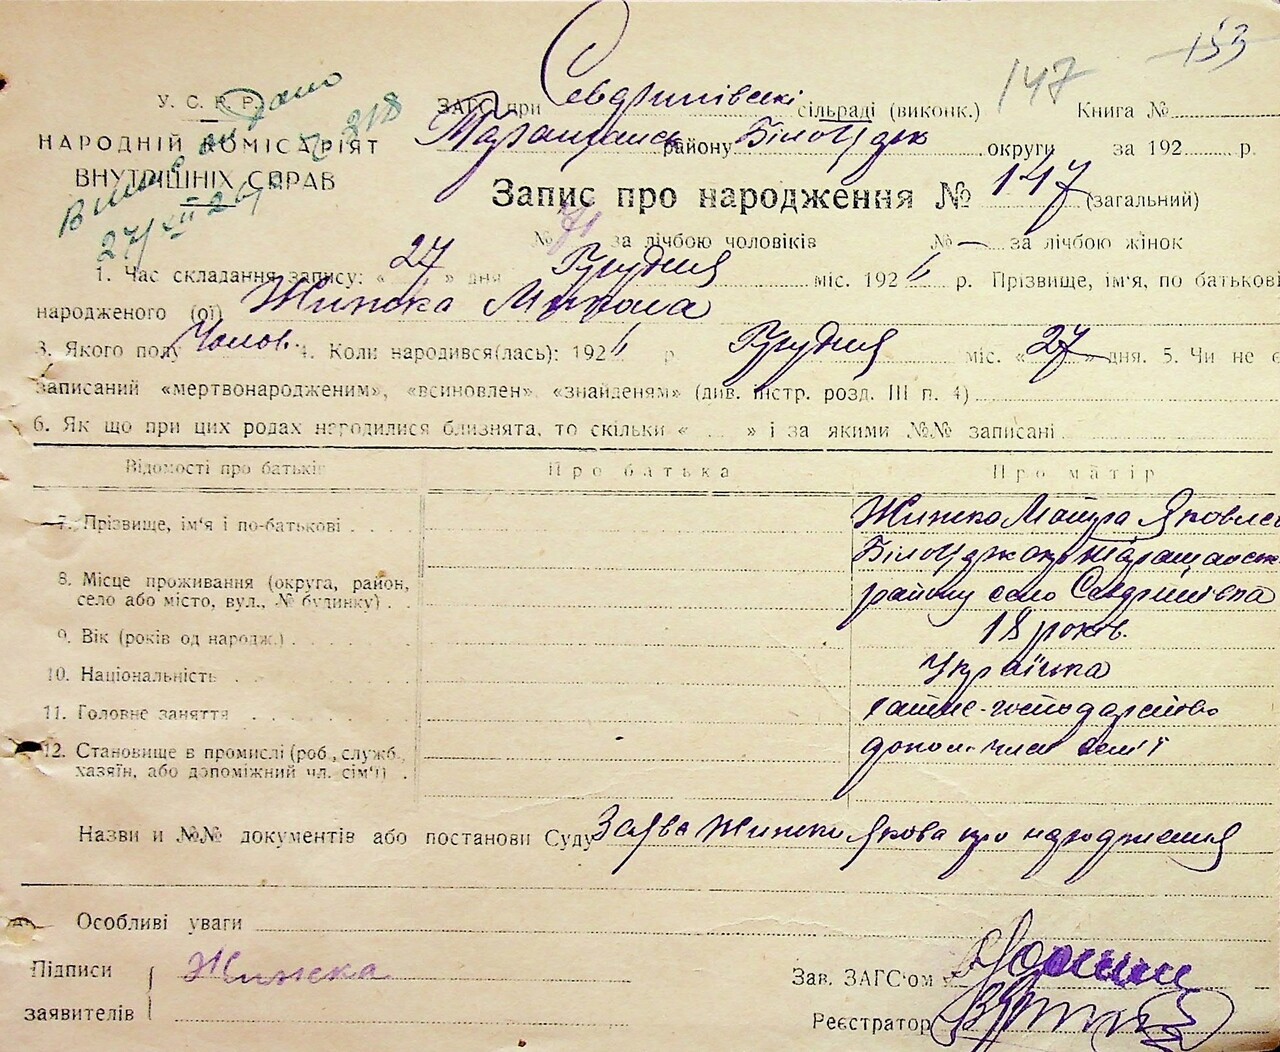 147 153
У. С. Р. Р.
НАРОДНІЙ КОМІСАРІЯТ
ВНУТРІШНІХ СПРАВ
Видано
№ 218
27/XII 26
ЗАГС при Севдринівскі сільраді (виконк.) Книга №
Таращанськ району БілоЦерк округи за 192 р.
Запис про народження № 147 (загальний)
№ 71 за лічбою чоловіків № — за лічбою жінок
1. Час складання запису: « 27 » дня Грудня міс. 1926 р. Прізвище, ім'я, по батькові
народженого (ої) Жижка Микола
3. Якого полу Чолов. 4. Коли народився(лась): 1926 р. Грудня міс. « 27 » дня. 5. Чи не є
записаний «мертвонародженим», «всиновлен», «знайденям» (див. інстр. розд. III п. 4)
6. Як що при цих родах народилися близнята, то скільки « » і за якими №№ записані
Відомості про батьків Про батька Про матір
7. Прізвище, ім'я і по-батькові Жижка Яковлев
8. Місце проживання (округа, район, село або місто, вул., № будинку) БілоЦ Таращанськ
району село Севдринівка
9. Вік (років од народж.) 18 років.
10. Національність Українка
11. Головне заняття господарство
12. Становище в промислі (роб., служб., хазяїн, або допоміжний чл. сім'ї) допом. член семії
Назви и №№ документів або постанови Суду Заява Жижки Якова про народження
Особливі уваги
Підписи Жижка
заявителів
Зав. ЗАГС'ом
Реєстратор